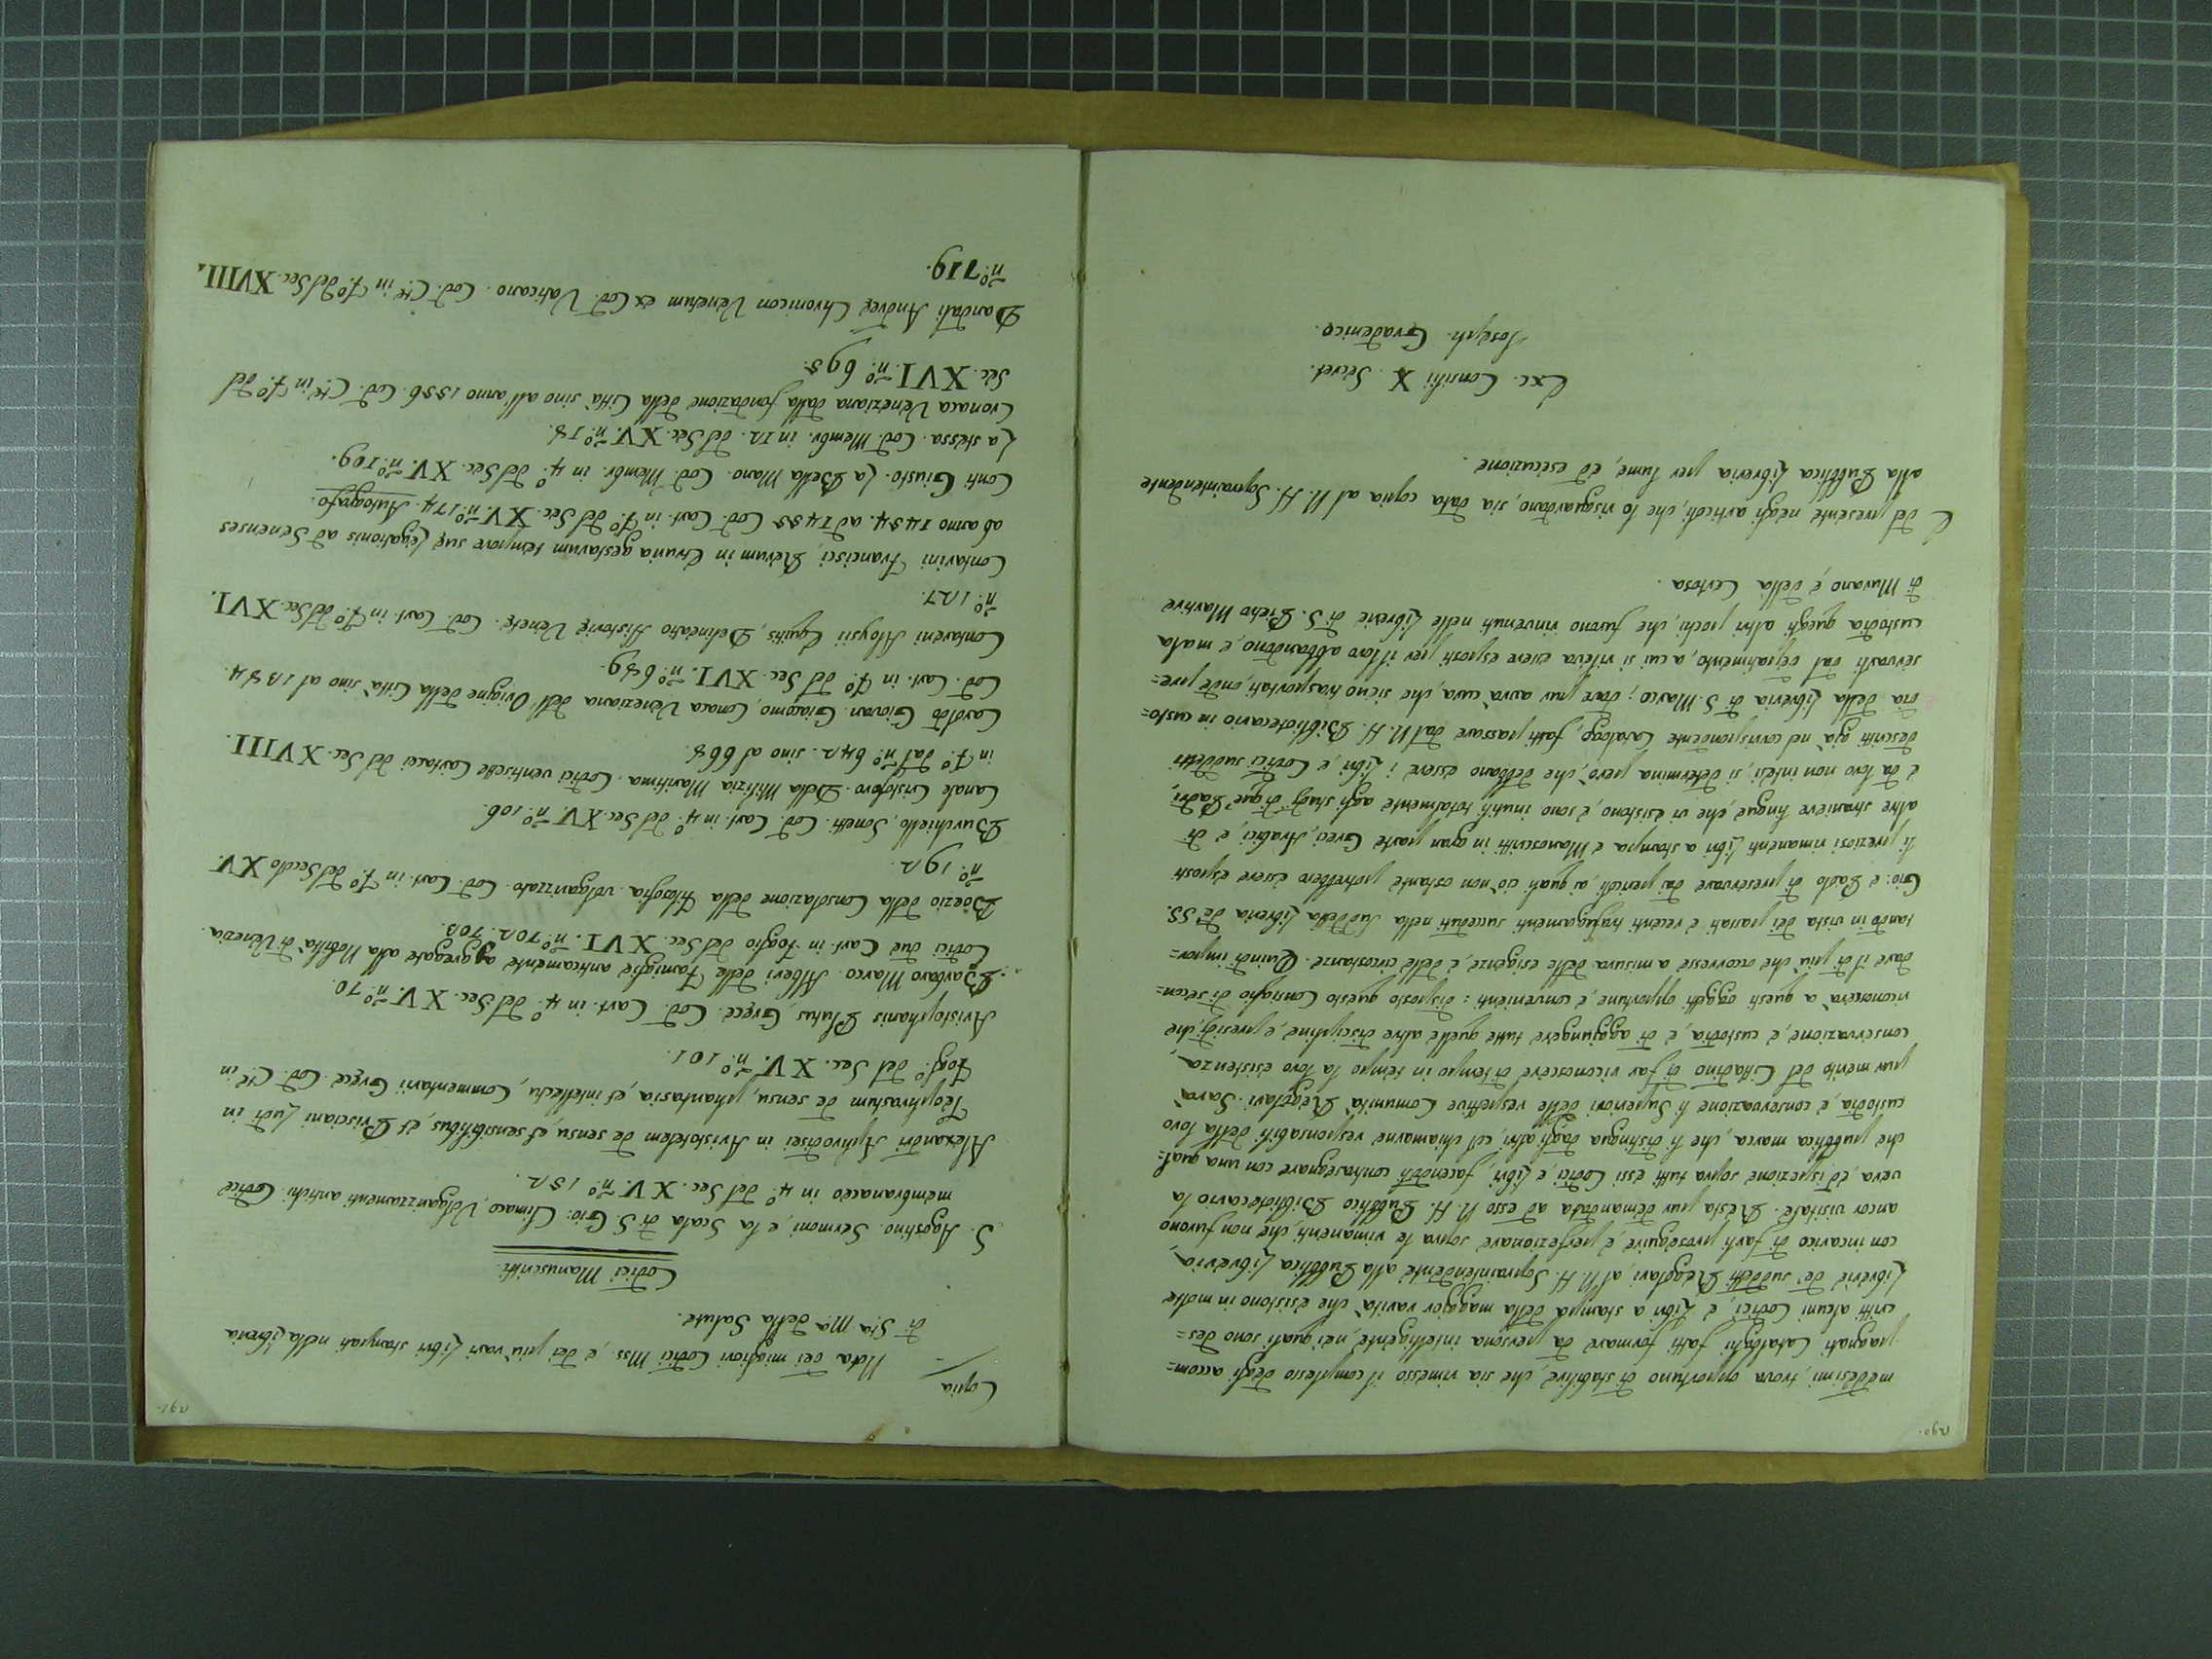 290.
medesimi, trova opportuno di stabilire, che sia rimesso il complesso degli accom=
pagnati Cataloghi fatti formare da persona intelligente, nei quali sono des=
critti alcuni Codici, e Libri a stampa della maggior rarità che esistono in molte
Librerie de' suddetti Regolari, al N. H. Sopraintendente alla Pubblica Libreria,
con incarico di farli proseguire, e perfezionare sopra le rimanenti, che non furono
ancor visitate. Resta pur demandata ad esso N. H. Pubblico Bibliotecario la
vera, ed ispezione sopra tutti essi Codici, e Libri, facendoli contrasegnare con una qual=
che pubblica marca, che li distingua dagli altri, col chiamarne responsabili della loro
custodia, e conservazione li Superiori delle respettive Comunità Regolari. Sarà
pur merito del Cittadino di far riconoscere di tempo in tempo la loro esistenza,
conservazione, e custodia, e di aggiungere tutte quelle altre discipline, e presidj, che
riconoscerà a questi oggetti opportune, e convenienti: disposto questo Consiglio di secon=
dare il di più che occorresse a misura delle esigenze, e delle circostanze. Quindi impor=
tando in vista dei passati e recenti trafugamenti succeduti nella suddetta Libreria de SS.
Gio: e Paolo di preservare dai pericoli, ai quali ciò non ostante potrebbero essere esposti
li preziosi rimanenti Libri a stampa e Manoscritti in gran parte Greci, Arabici, e di
altre straniere lingue, che vi esistono, e sono inutili totalmente agli studj di que' Padri,
e da loro non intesi, si determina però, che debbano essere i Libri, e Codici suddetti
descritti già nel corrispondente Catalogo, fatti passare dal N. H. Bibliotecario in custo=
dia della Libreria di S. Marco; dove pur avrà cura, che sieno trasportati, onde pre=
servarli dal deperimento, a cui si rileva esser esposti per il loro abbandono, e mala
custodia quegli altri pochi, che furono rinvenuti nelle Librerie di S. Pietro Martire
di Murano, e della Certosa.
E del presente negli articoli, che lo risguardano, sia data copia al N. H. Sopraintendente
alla Pubblica Libreria per lume, ed esecuzione.
Exc. Consilii X Secret.
Joseph Gradenigo.
291.
Copia
Nota dei migliori Codici Mss. e dei più rari Libri stampati nella Libreria
di Sta Ma della Salute.
Codici Manuscritti.
S. Agostino. Sermoni, e la Scala di S. Gio: Climaco, Volgarizzamenti antichi. Codice
membranaceo in 4.o del Sec. XV. n.o 152.
Alexandri Aphrodisei in Aristotelem de sensu, et sensibilibus, et Prisciani Ludi in
Teophrastum de sensu, phantasia, et intellectu, Commentarii Gręce. Cod. C.ta in
fog.o del Sec. XV. n.o 101.
Aristophanis Plutus, Gręce. Cod. Cart. in 4.o del Sec. XV. n.o 70.
Barbaro Marco. Alberi delle Famiglie anticamente aggregate alla Nobiltà di Venezia.
Codici due Cart. in foglio del Sec. XVI. n.o 702. 703.
Boezio della Consolazione della Filosofia volgarizzato. Cod. Cart. in f.o del Secolo XV
n.o 192.
Burchiello, Sonetti. Cod. Cart. in 4.o del Sec. XV. n.o 106.
Canale Cristoforo. Della Milizia Marittima. Codici ventisette Cartacei del Sec. XVIII.
in f.o dal n.o 642. sino al 668.
Caroldo Giovan. Giacomo, Cronaca Veneziana dell'Origine della Città sino al 1384.
Cod. Cart. in f.o del Sec. XVI. n.o 659.
Contareni Aloysii Equitis, Delineatio Historię Venetę. Cod. Cart. in f.o del Sec. XVI.
n.o 127.
Contarini Francisci, Rerum in Etruria gestarum tempore suę Legationis ad Senenses
ab anno 1454. ad 1455 Cod. Cart. in f.o del Sec. XV n.o 174. Autografo.
Conti Giusto. La Bella Mano. Cod. Membr. in 4.o del Sec. XV. n.o 109.
La stessa. Cod. Membr. in 12. del Sec. XV. n.o 18.
Cronaca Veneziana dalla fondazione della Città sino all'anno 1556. Cod. C.ta in f.o del
Sec. XVI. n.o 698.
Dandali Andreę Chronicon Venetum ex Cod. Vaticano. Cod. C.ta in f.o del Sec. XVIII.
n.o 719.